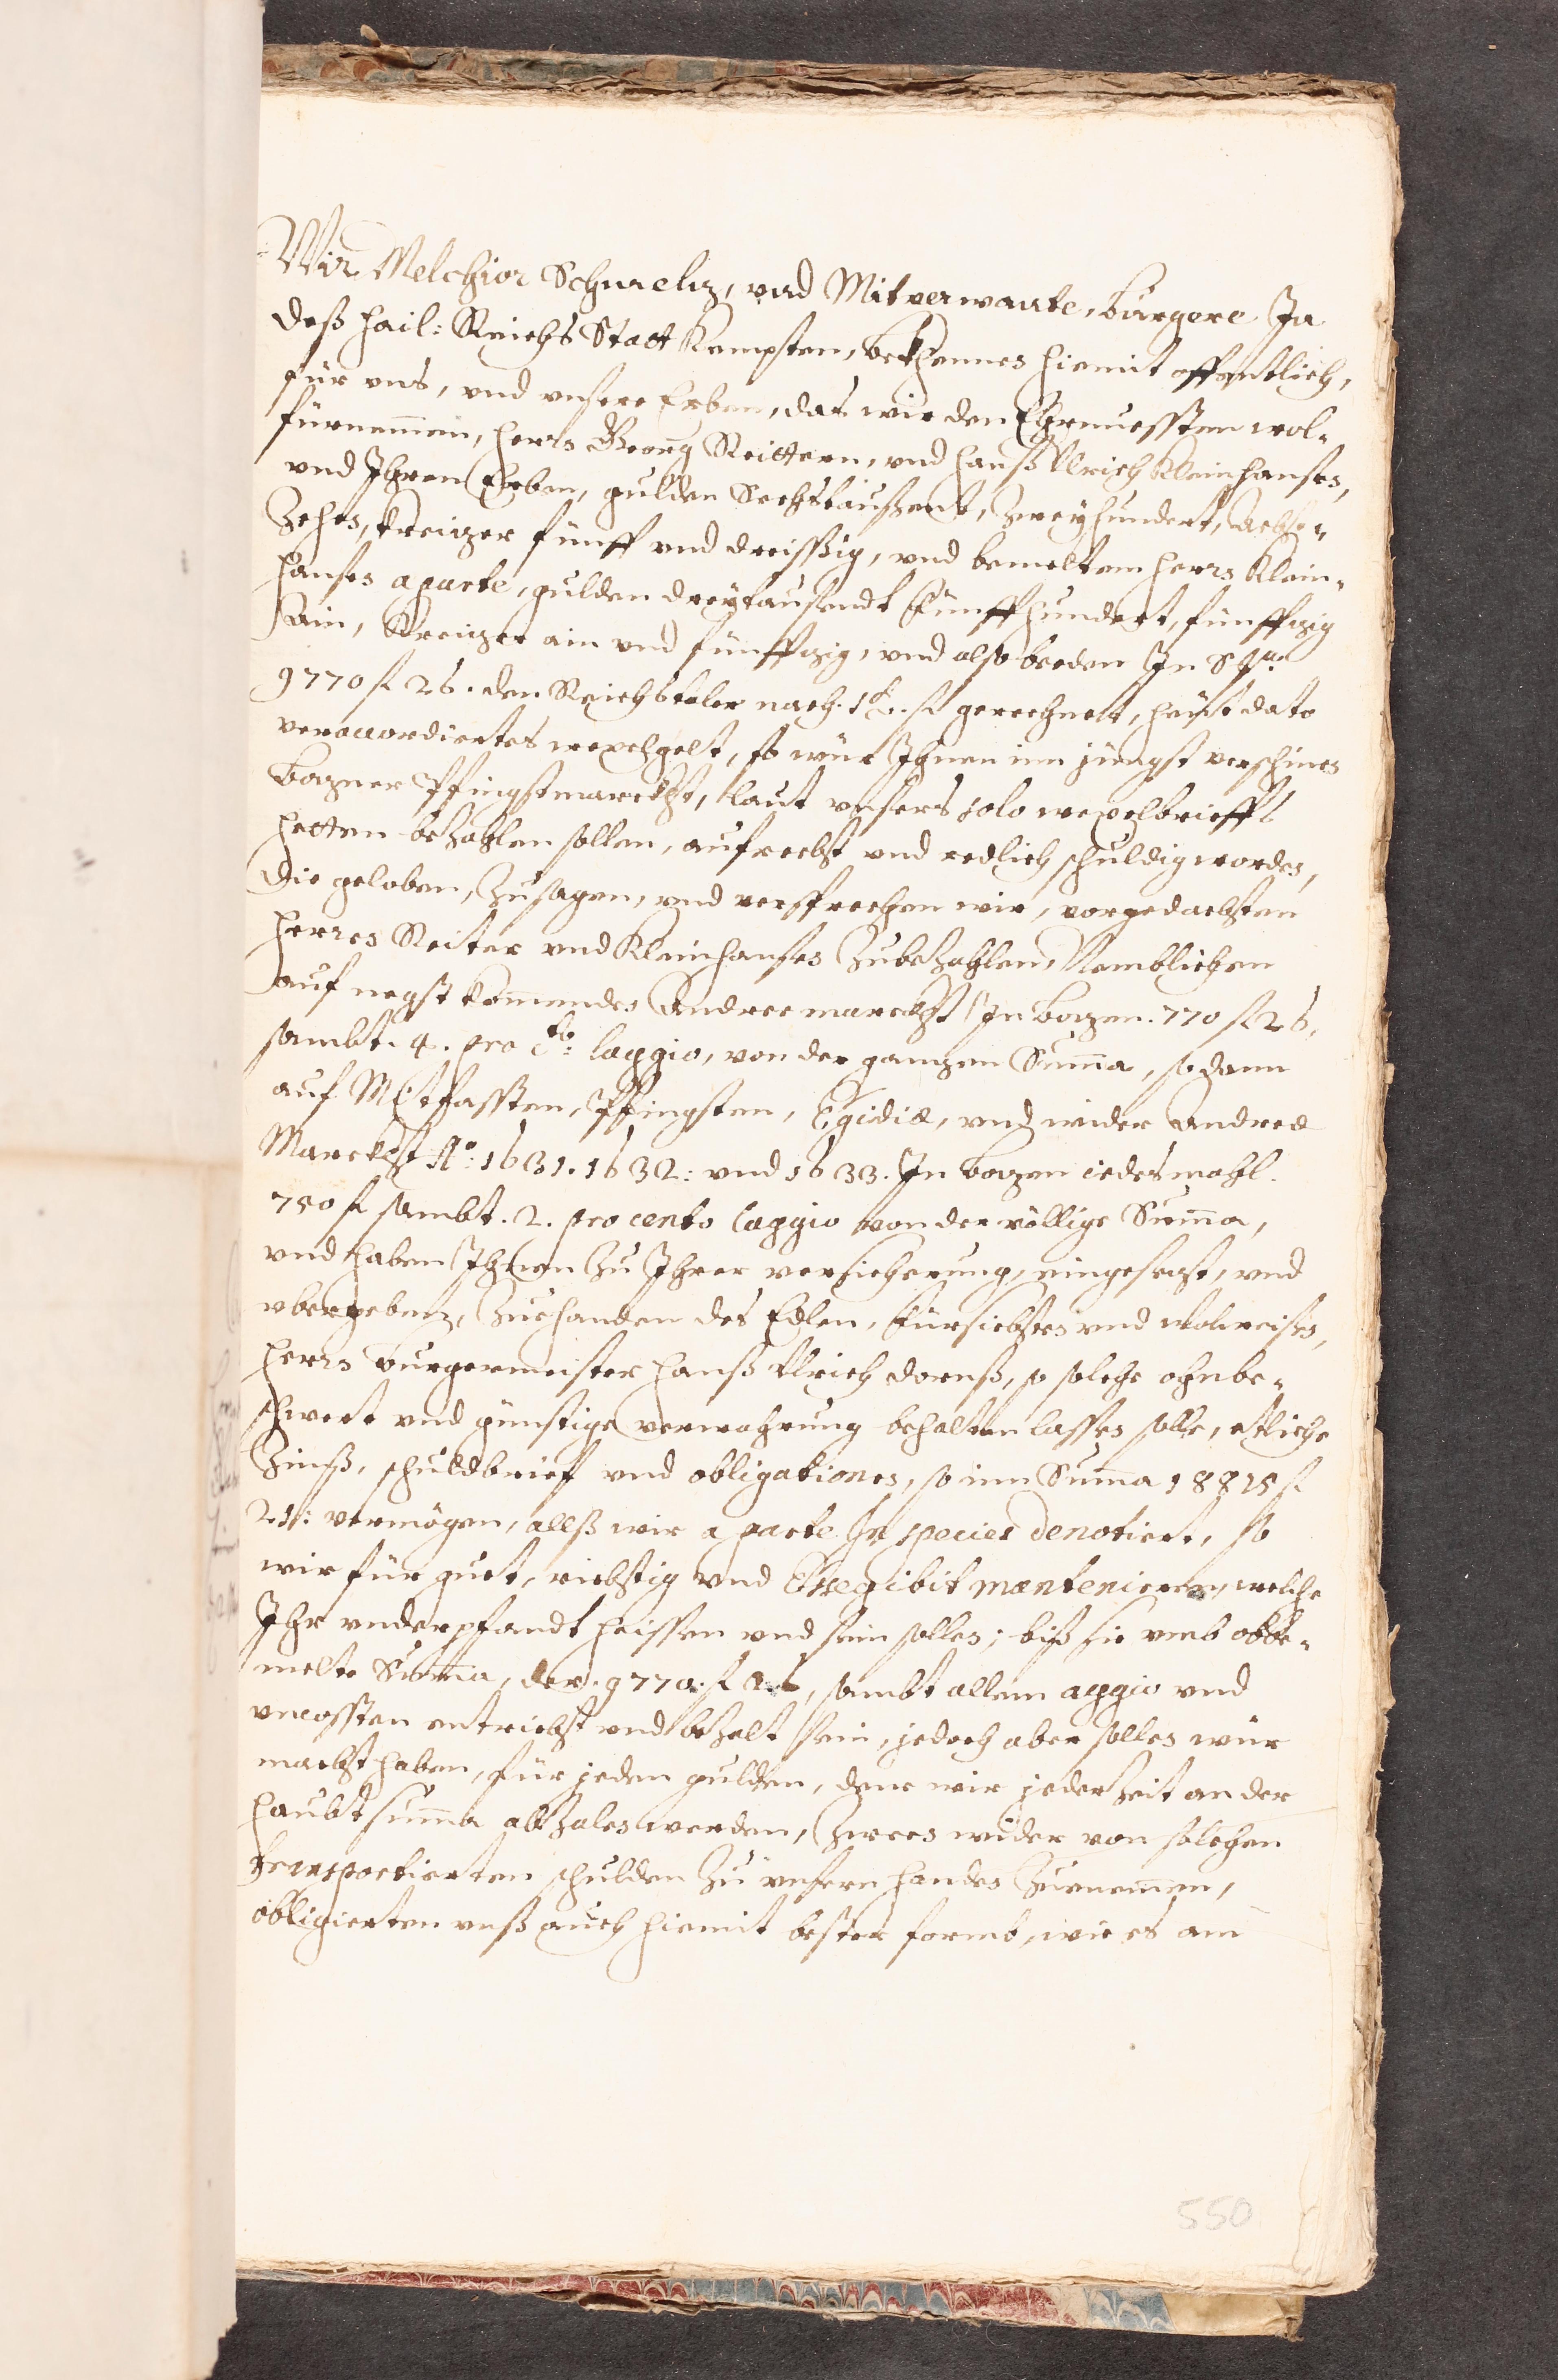 Wir Melchior Schnaeliz, vnd Mitverwante, burgere In
deß Hail: Reichs Statt Kempten, bekhennen hiemit offentlich,
für vns, vnd vnsere Erben, das wir den Ehrnuessten wol-
fürnemmen, Herrn Georg Reittern, vnd Hanß Vlrich Kleinhansen,
vnd Ihren Erben, gulden Sechstaußent, Zweyhundert, Achze-
Zehen, kreizer fünff vnd dreissig, vnd bemeltem Herrn Klein-
hansen aparte, gulden dreytausendt fünffhundert, fünffzig
Ain, kreizer ain vnd fünffzig, vnd also beeden In Sa.
9770 fl 26. den Reichstaler nach 1½ fl gerechnet, heüt dato
veraccordiertes wexelgelt, so wür Ihnen inn jüngst verschinen
Bozner Pfingstmarckht, laut vnsers solo wexelbrieffs
hetten bezahlen sollen, aufrecht vnd redlich schuldig worden,
die geloben, Zusagen, vnd versprechen wir, vorgedachten
Herren Reiter vnd Kleinhansen Zubezahlen, Nemblichen
auf negst kommendes Andree marckht In bozen. 770 fl 26,
sambt. 4. pro cto: laggio, von der ganzen Summa, sodann
auf Mitfassten, Pfingsten, Egidiæ, vnd wider Andreæ
Marckht Ao: 1631. 1632: vnd 1633. In bozen iedesmahl.
750 fl sambt. 2. pro cento laggio von der völlige Summa,
vnd haben Ihnen Zu Ihrer versicherung, eingesezt, vnd
vbergeben, Zuehanden des Edlen, fürsichten vnd wolweisen,
Herrn burgermeister Hanß Vlrich dornß, so solche ohnbe-
schwert vnd günstige verwahrung behalten lassen solle, etliche
Zinß, schuldbrief vnd obligationes, so inn Summa 18825 fl
21: vermögen, allß wir aparte In species denotiert, so
wir für guet, richtig vnd Essegibil mantenieren, welche
Ihr vnderpfandt heissen vnd sein sollen; biß sie vmb obbe-
melte Summa, der. 9770. fl 26, sambt allem aggio vnd
vncossten entricht vnd bezalt sein, jedoch aber sollen wür
macht haben, für jeden gulden, dene wir jederzeit an der
Haubtsumma abzalen werden, Zween wider von solchen
transportierten schulden Zu vnsern handen Zuenemmen,
obligierten vnß auch hiemit bester formb, wie es am
550